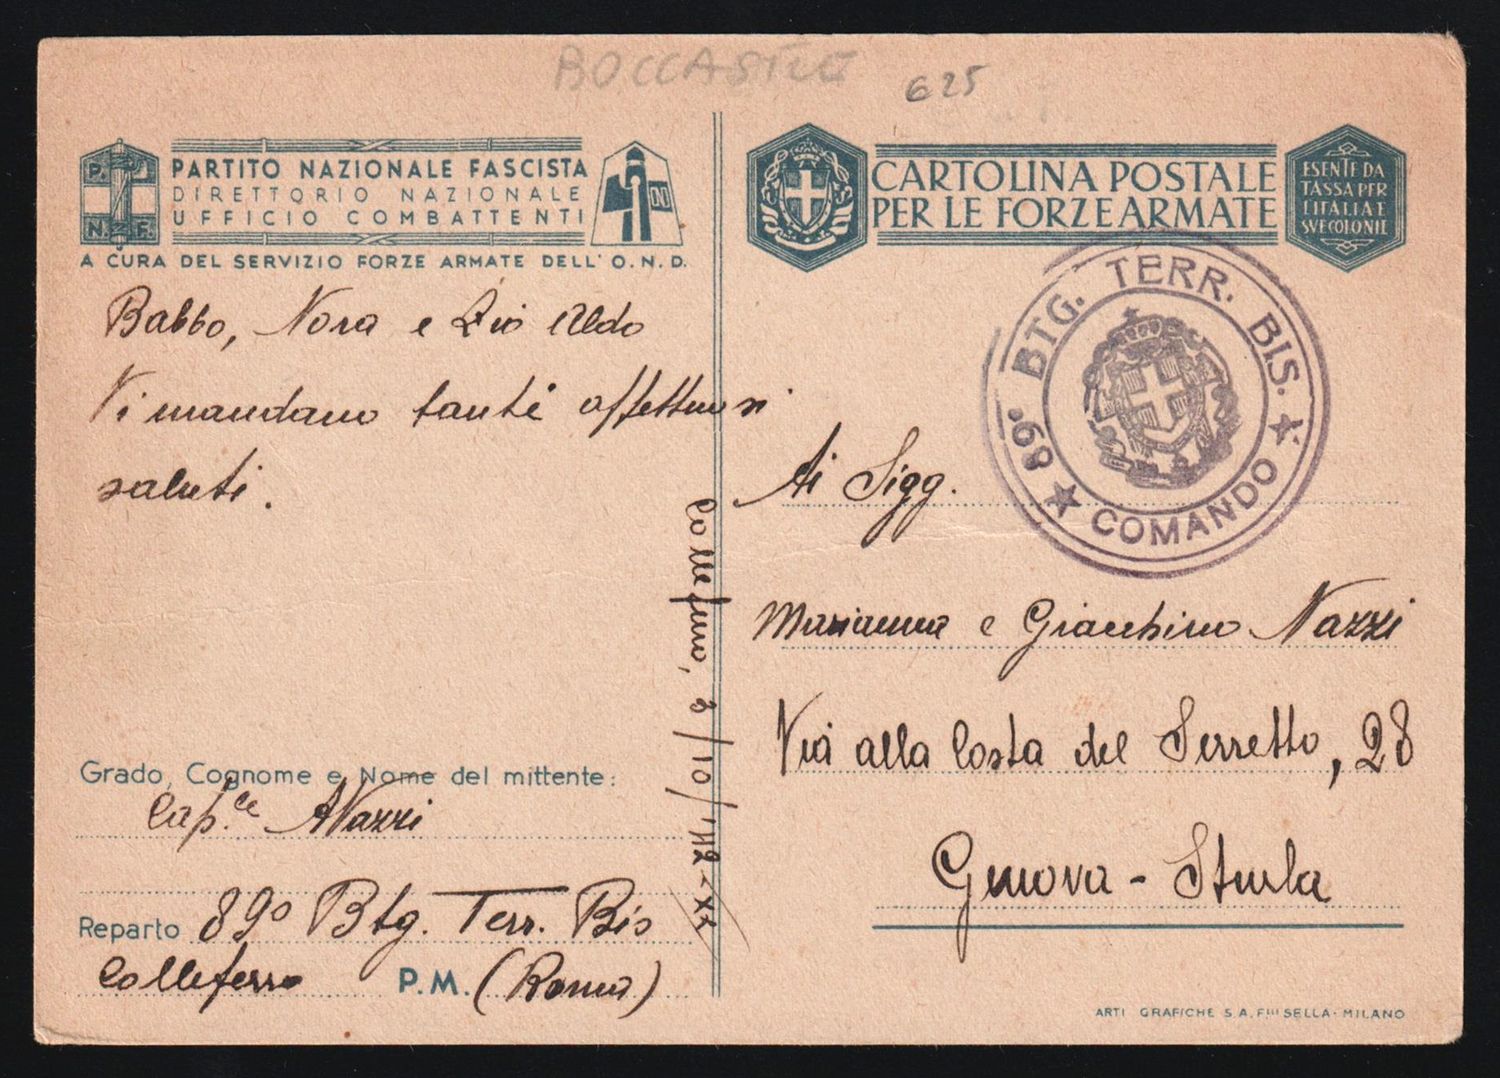 BOCCASILE
625
P. N.F.
PARTITO NAZIONALE FASCISTA
DIRETTORIO NAZIONALE
UFFICIO COMBATTENTI
A CURA DEL SERVIZIO FORZE ARMATE DELL' O.N.D.
Babbo, Nora e Zio Aldo
Vi mandano tanti affettuosi
saluti.
Colleferro, 2/10/'42-XX
Grado, Cognome e Nome del mittente:
Cap.le A Nazzi
Reparto 89º Btg. Terr. Bis
Colleferro P.M. (Roma)
CARTOLINA POSTALE
PER LE FORZE ARMATE
ESENTE DA
TASSA PER
L'ITALIA E
SVE COLONIE
89° BTG. TERR. BIS.
COMANDO
Ai Sigg.
Marianna e Giacchino Nazzi
Via alla Costa del Serretto, 28
Genova - Sturla
ARTI GRAFICHE S.A. Flli SELLA - MILANO